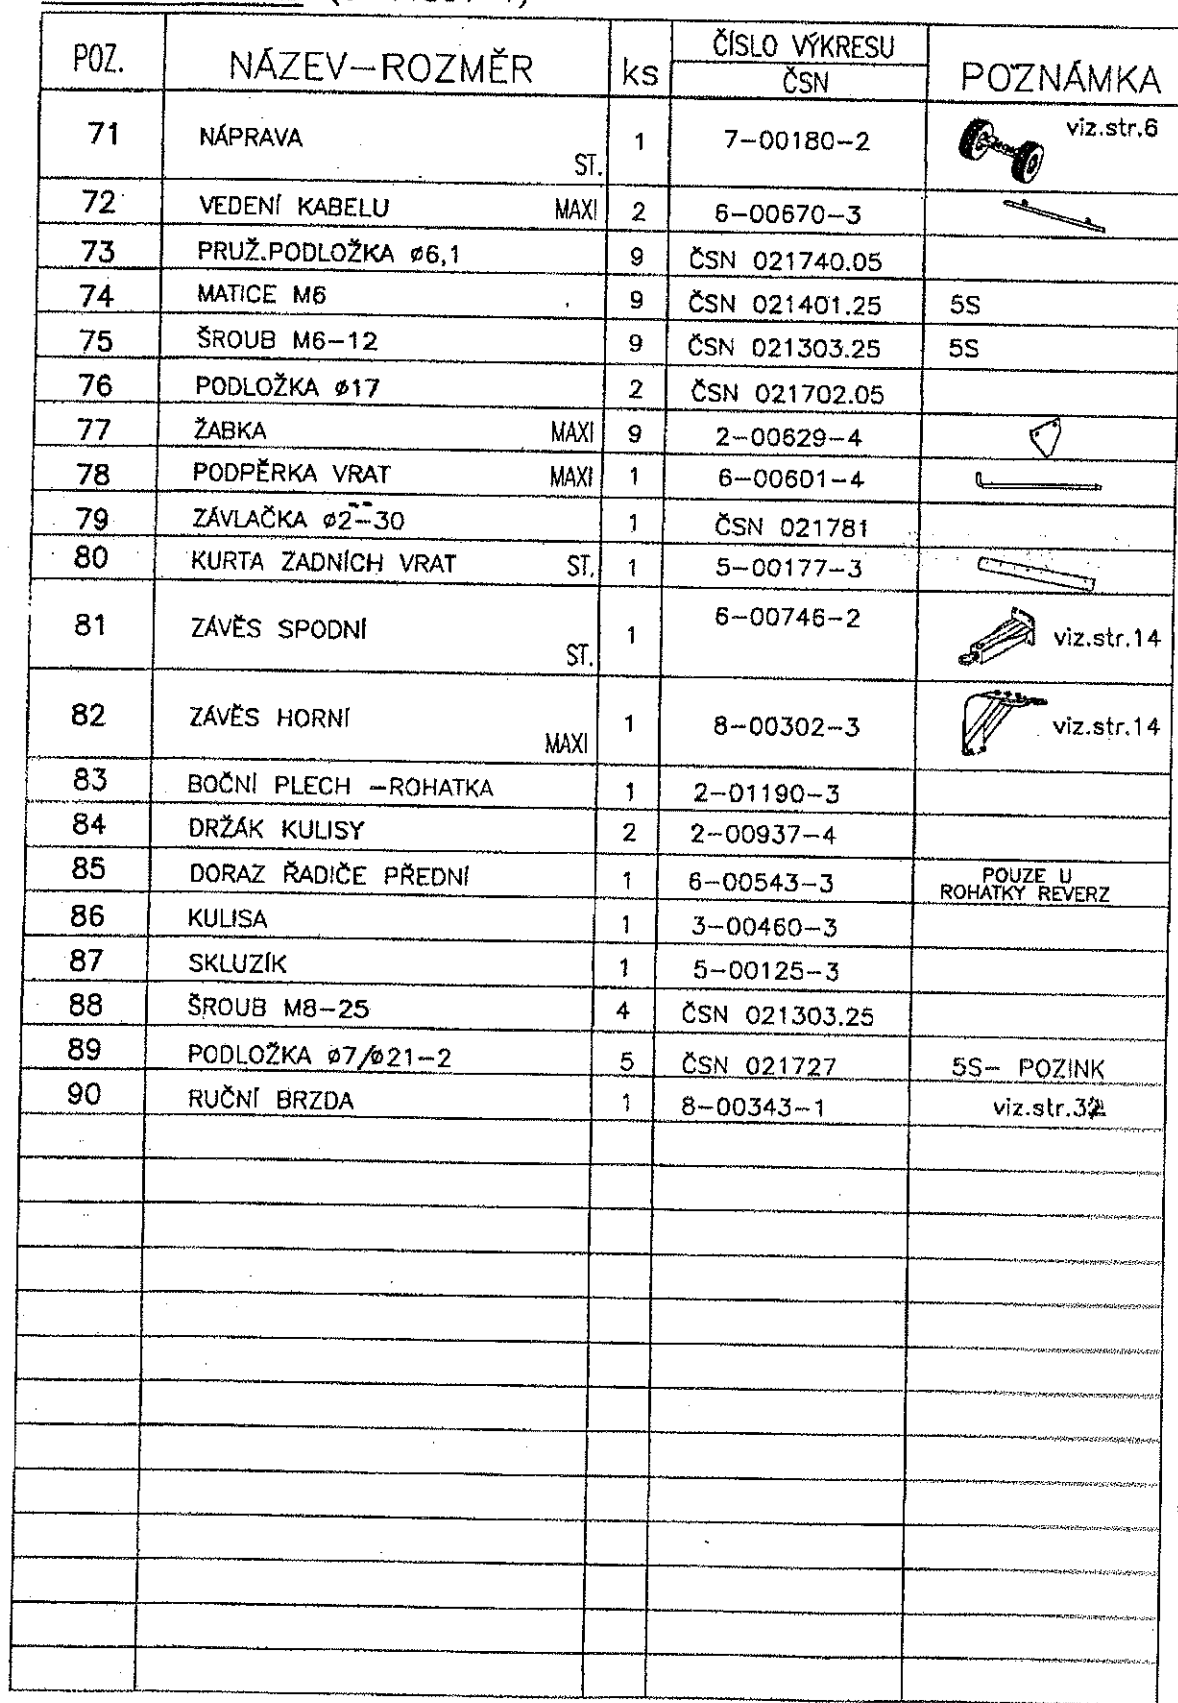 POZ. NÁZEV-ROZMĚR ks ČÍSLO VÝKRESU ČSN POZNÁMKA
71 NÁPRAVA ST. 1 7-00180-2 viz.str.6
72 VEDENÍ KABELU MAXI 2 6-00670-3
73 PRUŽ.PODLOŽKA ø6,1 9 ČSN 021740.05
74 MATICE M6 9 ČSN 021401.25 5S
75 ŠROUB M6-12 9 ČSN 021303.25 5S
76 PODLOŽKA ø17 2 ČSN 021702.05
77 ŽABKA MAXI 9 2-00629-4
78 PODPĚRKA VRAT MAXI 1 6-00601-4
79 ZÁVLAČKA ø2-30 1 ČSN 021781
80 KURTA ZADNÍCH VRAT ST. 1 5-00177-3
81 ZÁVĚS SPODNÍ ST. 1 6-00746-2 viz.str.14
82 ZÁVĚS HORNÍ MAXI 1 8-00302-3 viz.str.14
83 BOČNÍ PLECH -ROHATKA 1 2-01190-3
84 DRŽÁK KULISY 2 2-00937-4
85 DORAZ ŘADIČE PŘEDNÍ 1 6-00543-3 POUZE U ROHATKY REVERZ
86 KULISA 1 3-00460-3
87 SKLUZÍK 1 5-00125-3
88 ŠROUB M8-25 4 ČSN 021303.25
89 PODLOŽKA ø7/ø21-2 5 ČSN 021727 5S- POZINK
90 RUČNÍ BRZDA 1 8-00343-1 viz.str.32